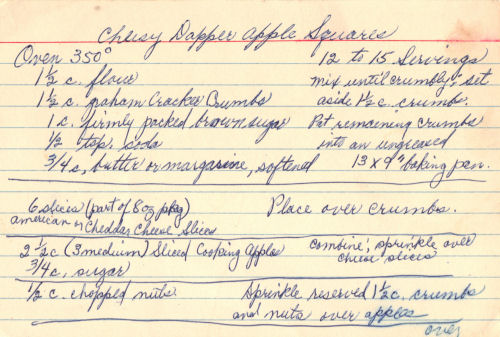 Cheesy Dapper Apple Squares
Oven 350° 12 to 15 Servings
1 1/2 c. flour mix until crumbly; set
1 1/2 c. graham Cracker Crumbs aside 1 1/2 c. crumbs.
1 c. firmly packed brown sugar Pat remaining crumbs
1/2 tsp. soda into an ungreased
3/4 c, butter or margarine, softened 13 x 9" baking pan.
6 slices (part of 8 oz pkg) Place over crumbs.
american or Cheddar Cheese Slices
2 1/2 c (3 medium) Sliced Cooking Apples combine; sprinkle over
3/4 c, sugar cheese slices
1/2 c. chopped nuts. Sprinkle reserved 1 1/2 c. crumbs
and nuts over apples
over